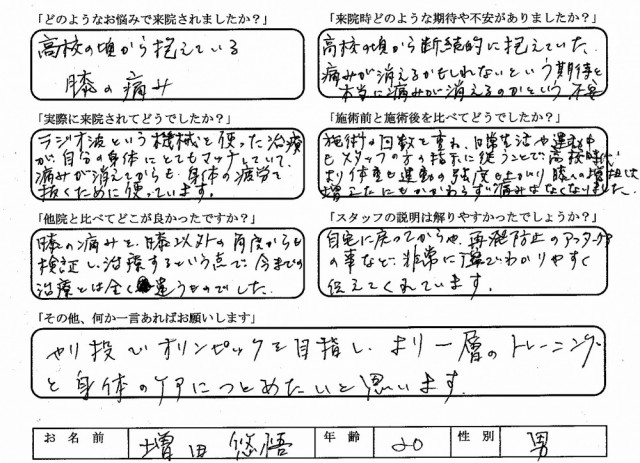 「どのようなお悩みで来院されましたか？」
高校の頃から抱えている
膝の痛み
「来院時どのような期待や不安がありましたか？」
高校の頃から断続的に抱えていた
痛みが消えるかもしれないという期待と
本当に痛みが消えるのかという不安
「実際に来院されてどうでしたか？」
ラジオ波という機械を使った治療
が、自分の身体にとてもマッチしていて、
痛みが消えてからも、身体の疲労を
抜くために使っています。
「施術前と施術後を比べてどうでしたか？」
施術の回数を重ね、日常生活や運動中
もスタッフの方の指示に従うことで、高校時代
より体重も運動の強度も上がり膝への負担は
増えたにもかかわらず痛みはなくなりました。
「他院と比べてどこが良かったですか？」
膝の痛みを、膝以外の角度からも
検証し、治療するという点で、今までの
治療とは全く違うものでした。
「スタッフの説明は解りやすかったでしょうか？」
自宅に戻ってからや、再発防止のアフターケア
の事など、非常に丁寧でわかりやすく
伝えてくれています。
「その他、何か一言あればお願いします」
やり投でオリンピックを目指し、より一層のトレーニング
と身体のケアにつとめたいと思います。
お名前 増田 悠悟 年齢 20 性別 男